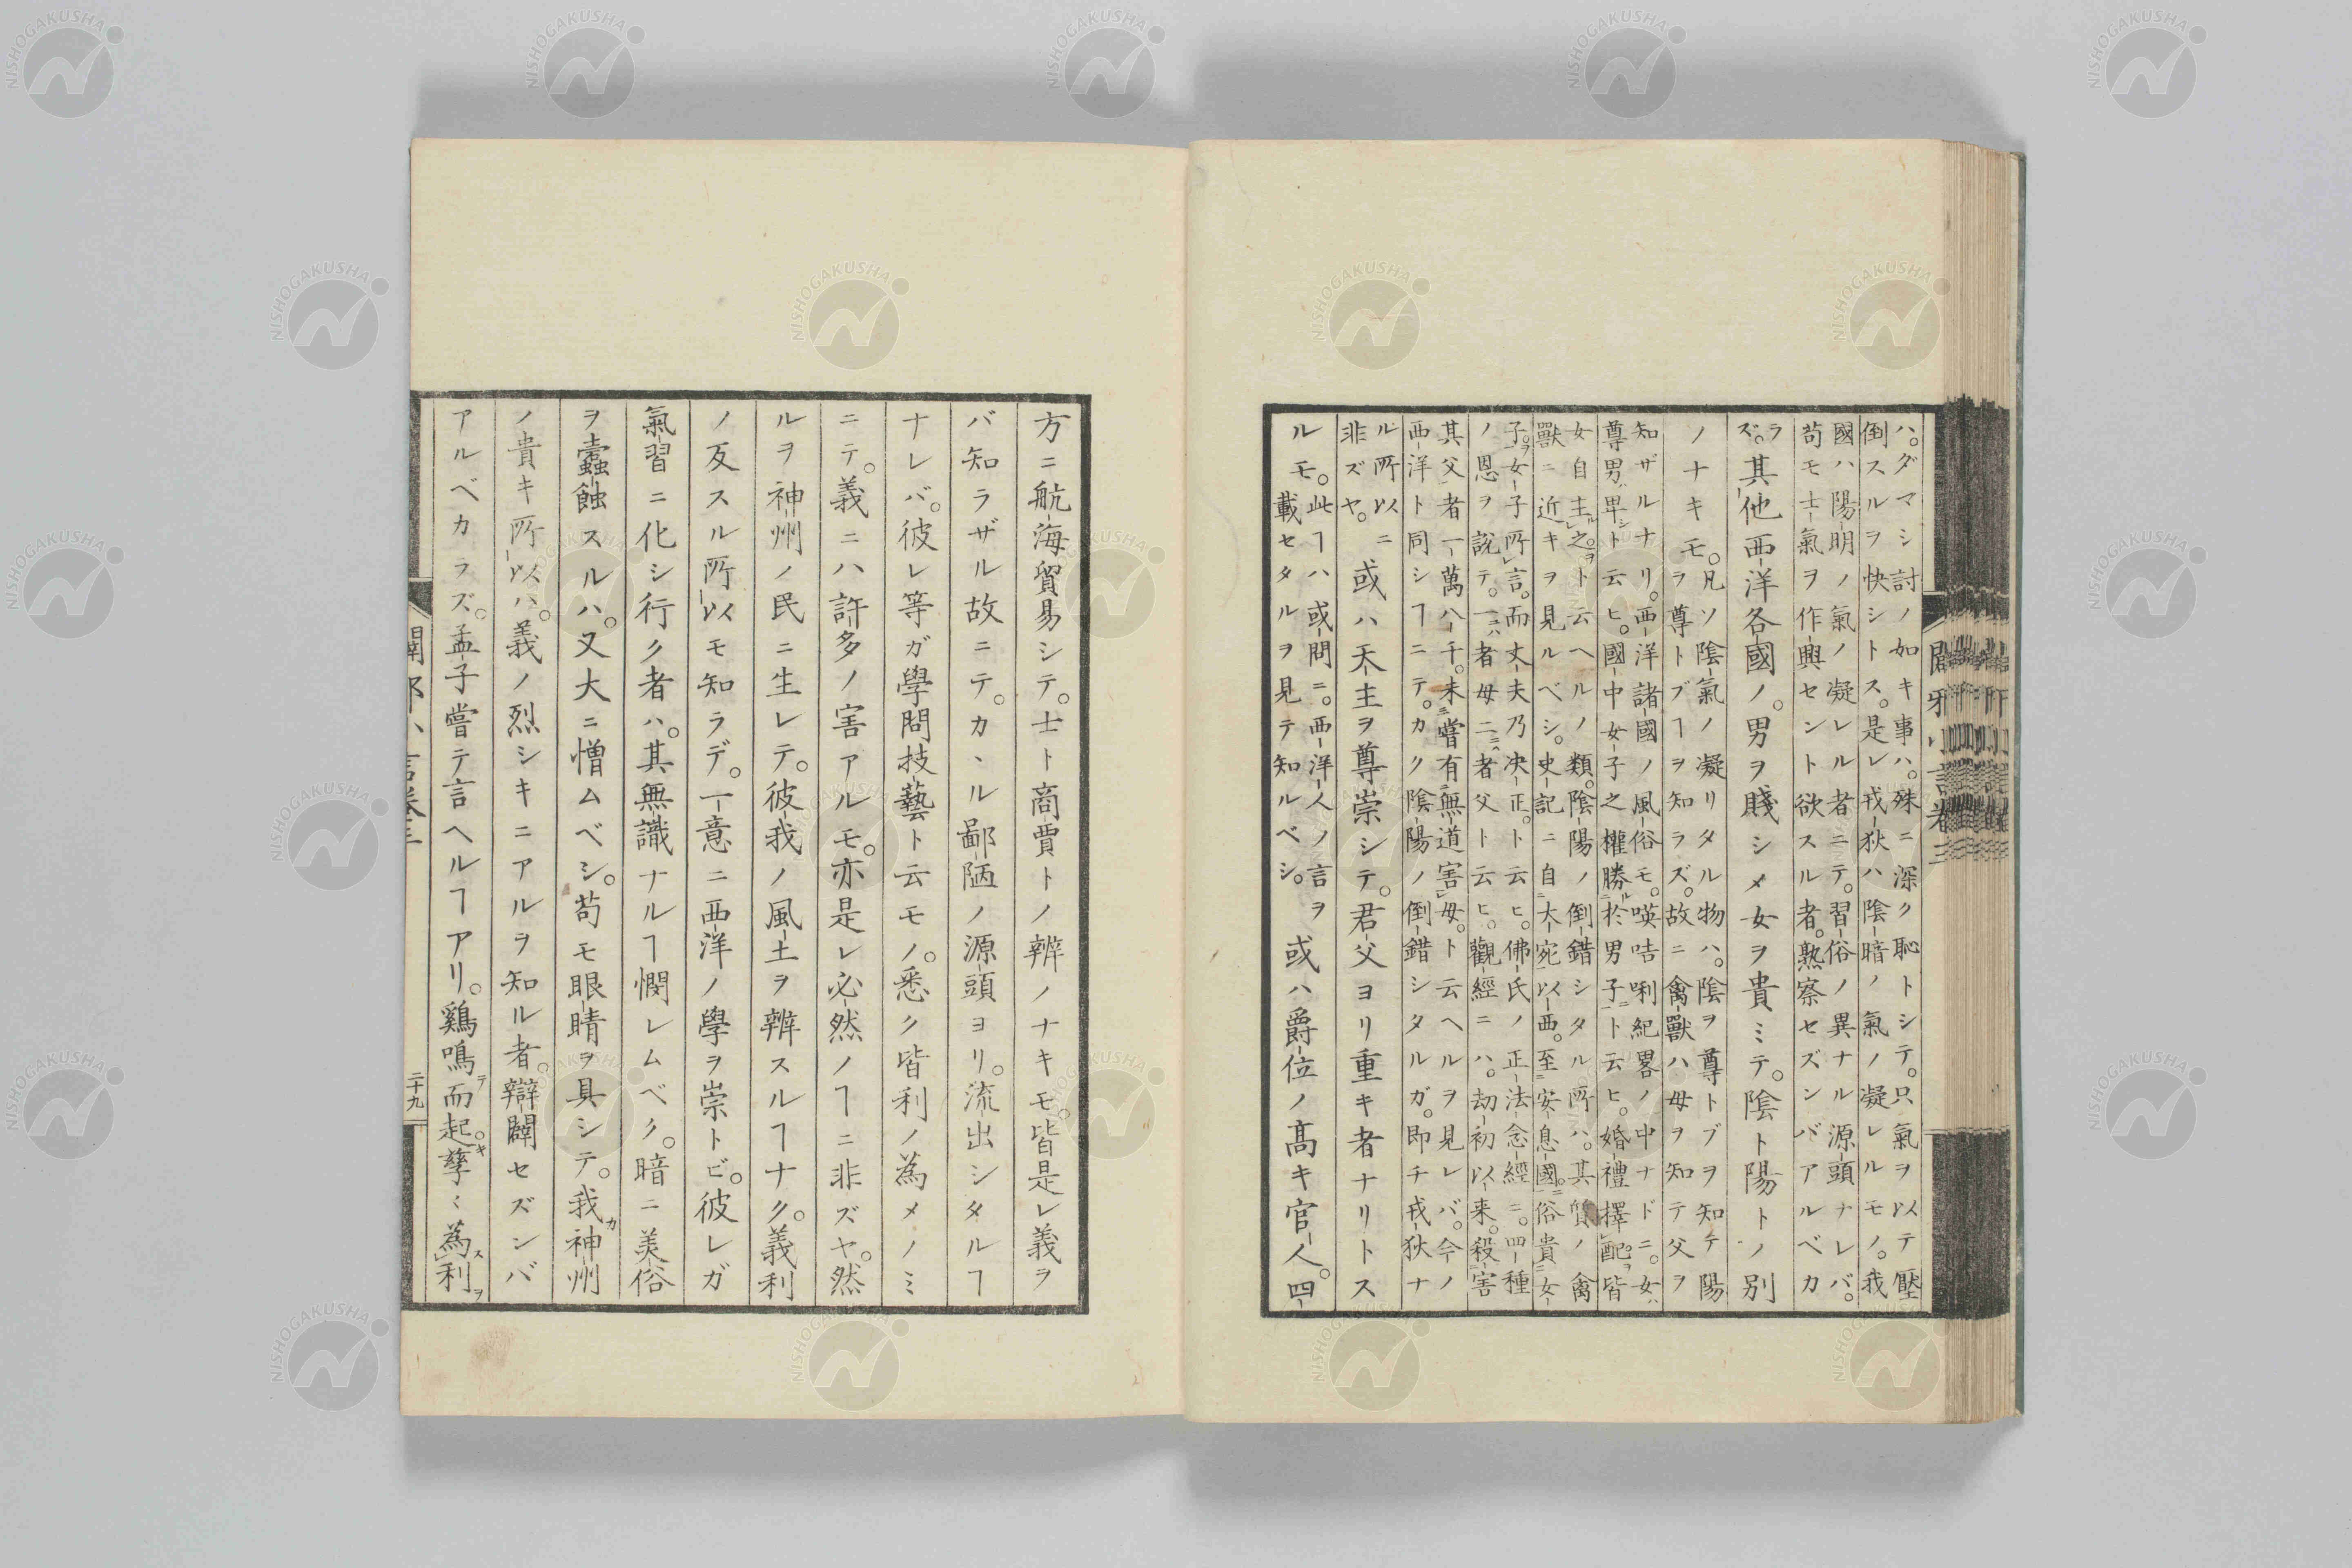 闢邪小言卷三
ハ。ダマシ討ノ如キ事ハ。殊ニ深ク恥トシテ。只氣ヲ以テ壓
倒スルヲ快シトス。是レ戎狄ハ陰暗ノ氣ノ凝レルモノ。我
國ハ陽明ノ氣ノ凝レル者ニテ。習俗ノ異ナル源頭ナレバ。
苟モ士氣ヲ作興セント欲スル者。熟察セズンバアルベカ
ラズ。其他西洋各國ノ。男ヲ賤シメ女ヲ貴ミテ。陰ト陽トノ別
ノナキモ。凡ソ陰氣ノ凝リタル物ハ。陰ヲ尊トブヲ知テ陽
ヲ尊トブヿヲ知ラズ。故ニ禽獸ハ母ヲ知テ父ヲ
知ザルナリ。西洋諸國ノ風俗モ。嘆咭唎紀畧ノ中ナドニ。女ハ
尊男ハ卑シト云ヒ。國中女子之權勝ル於男子ニト云ヒ。婚禮擇配ヲ皆
女自主ル之ヲ。ト云ヘルノ類。陰陽ノ倒錯シタル所ハ。其質ノ禽
獸ニ近キヲ見ルベシ。史記ニ自大宛以西。至安息國ニ。俗貴女
子ヲ。女子所言。而丈夫乃決正。ト云ヒ。佛氏ノ正法念經ニ。四種
ノ恩ヲ說テ。一ハ者母二ハ者父ト云ヒ。觀經ニハ。劫初以来。殺害
其父者一萬八千。未嘗有無道害母。ト云ヘルヲ見レバ。今ノ
西洋ト同シヿニテ。カク陰陽ノ倒錯シタルガ。即チ戎狄ナ
ル所以ニ
非ズヤ。或ハ天主ヲ尊崇シテ。君父ヨリ重キ者ナリトス
ルモ。此ヿハ或問ニ。西洋人ノ言ヲ
載セタルヲ見テ知ルベシ。或ハ爵位ノ高キ官人。四
方ニ航海貿易シテ。士ト商賈トノ辨ノナキモ。皆是レ義ヲ
バ知ラザル故ニテ。カヽル鄙陋ノ源頭ヨリ。流出シタルヿ
ナレバ。彼レ等ガ學問技藝ト云モノ。悉ク皆利ノ為メノミ
ニテ。義ニハ許多ノ害アルモ。亦是レ必然ノヿニ非ズヤ。然
ルヲ神州ノ民ニ生レテ。彼我ノ風土ヲ辨スルヿナク。義利
ノ反スル所以モ知ラデ。一意ニ西洋ノ學ヲ崇トビ。彼レガ
氣習ニ化シ行ク者ハ。其無識ナルヿ憫レムベク。暗ニ美俗
ヲ蠹蝕スルハ。又大ニ憎ムベシ。苟モ眼睛ヲ具シテ。我カ神州
ノ貴キ所以ハ。義ノ烈シキニアルヲ知ル者。辯闢セズンバ
アルベカラズ。孟子嘗テ言ヘルヿアリ。鷄鳴テ而起キ。孳〻為スル利ヲ
闢邪小言卷三
二十九